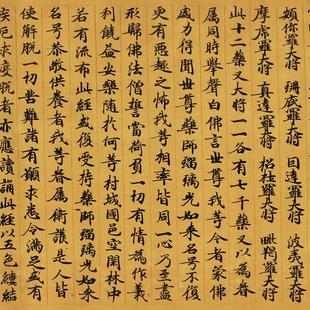 頞你羅大將 珊底羅大將 因達羅大將 波夷羅大將
摩虎羅大將 真達羅大將 招杜羅大將 毗羯羅大將
此十二藥叉大將一一各有七千藥叉以為眷
属同時舉聲白佛言世尊我等今者蒙佛
威力得聞世尊藥師瑠璃光如來名号不復
更有惡趣之怖我等相率皆同一心乃至盡
形歸佛法僧誓當荷負一切有情為作義
利饒益安樂隨於何等村城國邑空閑林中
若有流布此經或復受持藥師瑠璃光如來
名号恭敬供養者我等眷属衛護是人皆
使解脫一切苦難諸有願求悉令滿足或有
疾厄求度脫者亦應讀誦此經以五色縷結